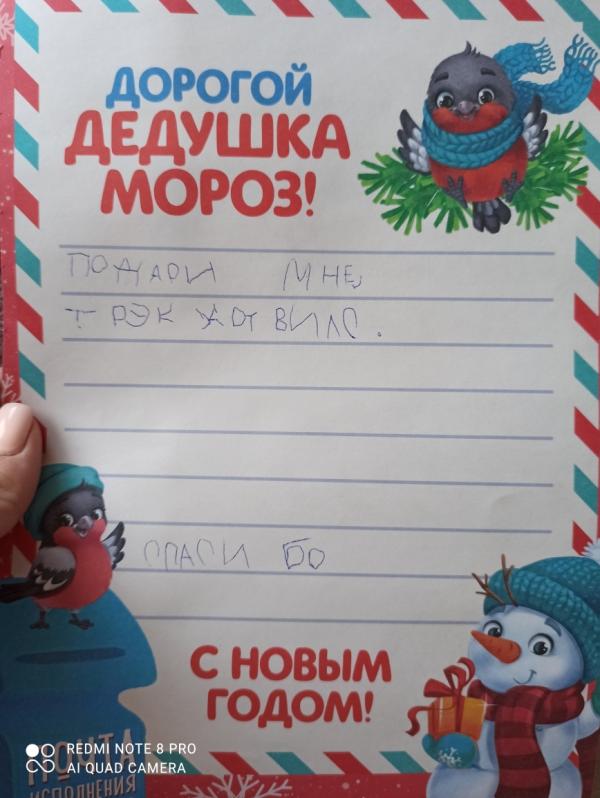 ДОРОГОЙ
ДЕДУШКА
МОРОЗ!
ПОДАРИ МНЕ,
ТРЭК ХОТ ВИЛС.
СПАСИ БО
С НОВЫМ
ГОДОМ!
ПОЧТА
ИСПОЛНЕНИЯ
REDMI NOTE 8 PRO
AI QUAD CAMERA